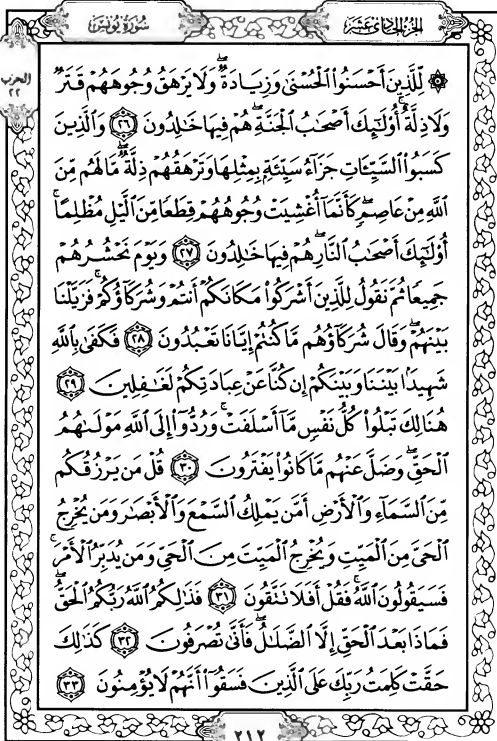 سُورَةُ يُونُسَ الجُزْءُ الحَادِي عَشَرَ
الحزب
٢٢
۞ لِّلَّذِينَ أَحْسَنُوا۟ ٱلْحُسْنَىٰ وَزِيَادَةٌ ۖ وَلَا يَرْهَقُ وُجُوهَهُمْ قَتَرٌ
وَلَا ذِلَّةٌ ۚ أُو۟لَـٰٓئِكَ أَصْحَـٰبُ ٱلْجَنَّةِ ۖ هُمْ فِيهَا خَـٰلِدُونَ ﴿٢٦﴾ وَٱلَّذِينَ
كَسَبُوا۟ ٱلسَّيِّـَٔاتِ جَزَآءُ سَيِّئَةٍۭ بِمِثْلِهَا وَتَرْهَقُهُمْ ذِلَّةٌ ۖ مَّا لَهُم مِّنَ
ٱللَّهِ مِنْ عَاصِمٍ ۖ كَأَنَّمَآ أُغْشِيَتْ وُجُوهُهُمْ قِطَعًا مِّنَ ٱلَّيْلِ مُظْلِمًا ۚ
أُو۟لَـٰٓئِكَ أَصْحَـٰبُ ٱلنَّارِ ۖ هُمْ فِيهَا خَـٰلِدُونَ ﴿٢٧﴾ وَيَوْمَ نَحْشُرُهُمْ
جَمِيعًا ثُمَّ نَقُولُ لِلَّذِينَ أَشْرَكُوا۟ مَكَانَكُمْ أَنتُمْ وَشُرَكَآؤُكُمْ ۚ فَزَيَّلْنَا
بَيْنَهُمْ ۖ وَقَالَ شُرَكَآؤُهُم مَّا كُنتُمْ إِيَّانَا تَعْبُدُونَ ﴿٢٨﴾ فَكَفَىٰ بِٱللَّهِ
شَهِيدًۢا بَيْنَنَا وَبَيْنَكُمْ إِن كُنَّا عَنْ عِبَادَتِكُمْ لَغَـٰفِلِينَ ﴿٢٩﴾
هُنَالِكَ تَبْلُوا۟ كُلُّ نَفْسٍ مَّآ أَسْلَفَتْ ۚ وَرُدُّوٓا۟ إِلَى ٱللَّهِ مَوْلَىٰهُمُ
ٱلْحَقِّ ۖ وَضَلَّ عَنْهُم مَّا كَانُوا۟ يَفْتَرُونَ ﴿٣٠﴾ قُلْ مَن يَرْزُقُكُم
مِّنَ ٱلسَّمَآءِ وَٱلْأَرْضِ أَمَّن يَمْلِكُ ٱلسَّمْعَ وَٱلْأَبْصَـٰرَ وَمَن يُخْرِجُ
ٱلْحَىَّ مِنَ ٱلْمَيِّتِ وَيُخْرِجُ ٱلْمَيِّتَ مِنَ ٱلْحَىِّ وَمَن يُدَبِّرُ ٱلْأَمْرَ ۚ
فَسَيَقُولُونَ ٱللَّهُ ۚ فَقُلْ أَفَلَا تَتَّقُونَ ﴿٣١﴾ فَذَٰلِكُمُ ٱللَّهُ رَبُّكُمُ ٱلْحَقُّ ۖ
فَمَاذَا بَعْدَ ٱلْحَقِّ إِلَّا ٱلضَّلَـٰلُ ۖ فَأَنَّىٰ تُصْرَفُونَ ﴿٣٢﴾ كَذَٰلِكَ
حَقَّتْ كَلِمَتُ رَبِّكَ عَلَى ٱلَّذِينَ فَسَقُوٓا۟ أَنَّهُمْ لَا يُؤْمِنُونَ ﴿٣٣﴾
٢١٢